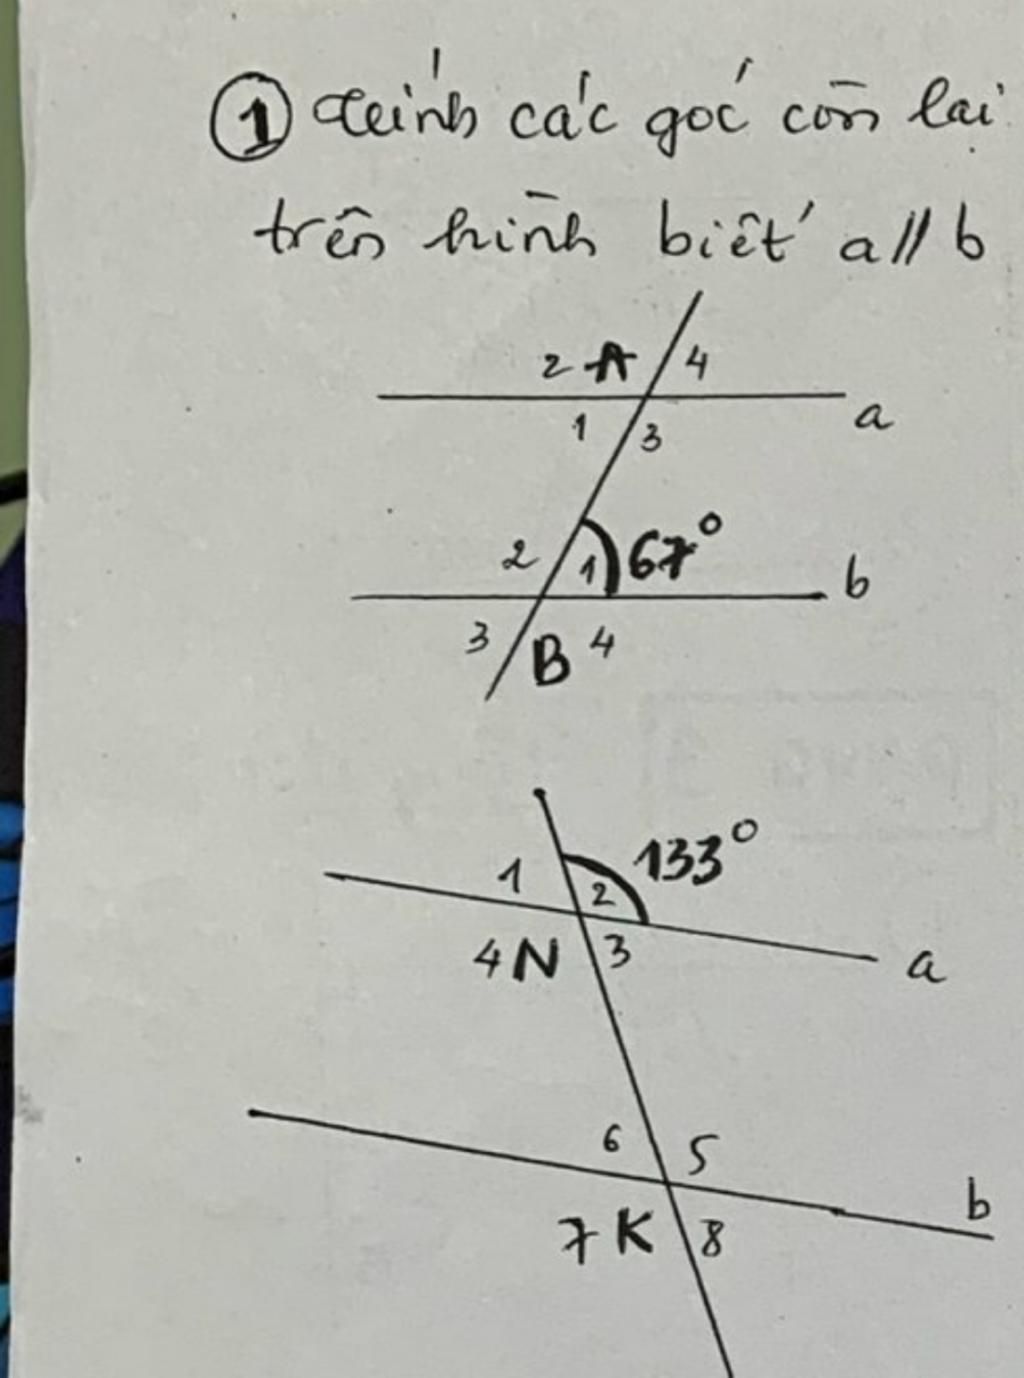 ① Tính các góc còn lại
trên hình biết a // b
2 A 4
a
1 3
2 1 67°
b
3 B 4
133°
1 2
4 N 3 a
6 5
b
7 K 8